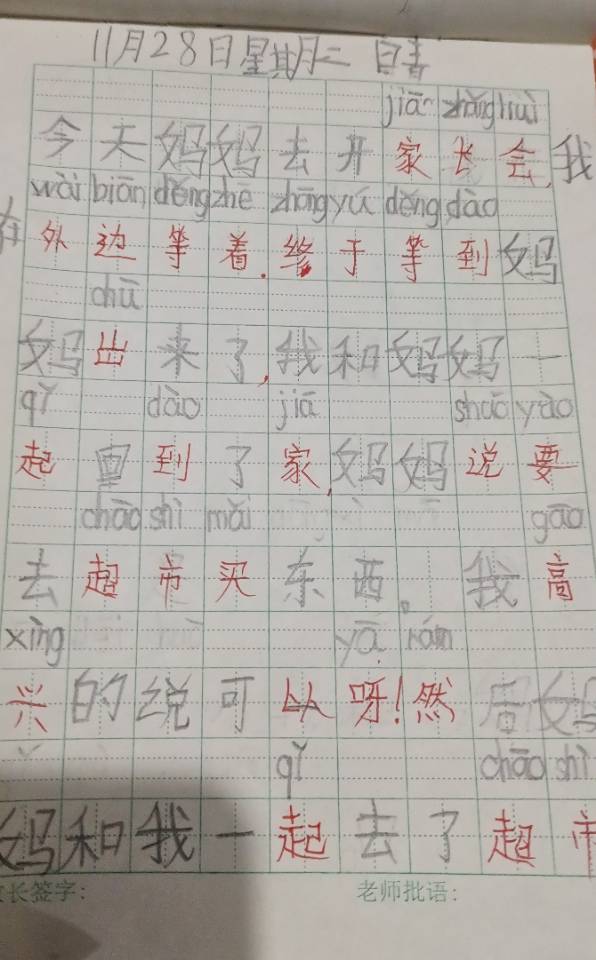 11月28日星期二 日青
jiā zhǎng huì
今天妈妈去开家长会,我
wài biān děng zhē zhōng yú děng dào
在外边等着.终于等到妈
chū
妈出来了,我和妈妈一
qǐ dào jiā shuō yào
起回到了家,妈妈说要
chāo shì mǎi gāo
去超市买东西。我高
xìng yā rán
兴的说可以呀!然后妈
qǐ chāo shì
妈和我一起去了超市
长签字: 老师批语: